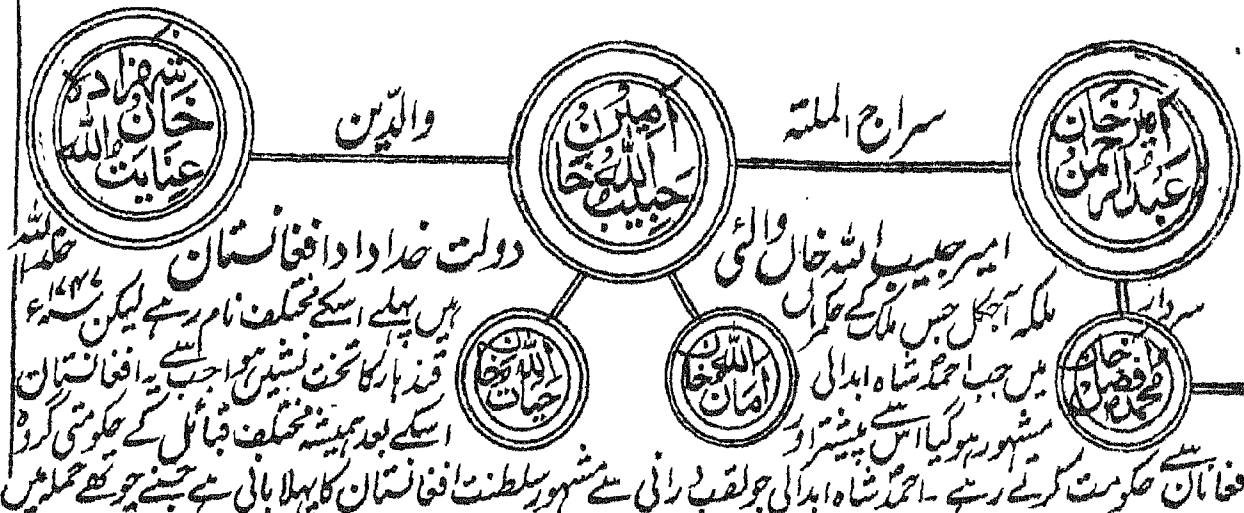 امیر عبدالرحمن خان
سراج الملتہ
امیر حبیب اللہ خان
والدّین
شہزادہ عنایت اللہ خان
سردار محمد افضل خان
امان اللہ خان
حیات اللہ خان
امیر حبیب اللہ خاں والئی دولت خداداد افغانستان
ملکہ آجکل جس ملک کے حکمراں ہیں پہلے اسکے مختلف نام رہے لیکن ۱۷۴۷ء
میں جب احمد شاہ ابدالی قندہار کا تخت نشین ہوا جب سے یہ افغانستان
مشہور ہو گیا اس سے پیشتر اور اسکے بعد ہمیشہ مختلف قبائل کے حکومتی گروہ
افغانان حکومت کرتے رہے ۔ احمد شاہ ابدالی جو لقب درانی سے مشہور سلطنت افغانستان کا پہلا بانی ہے جسنے چوتھے حملہ میں